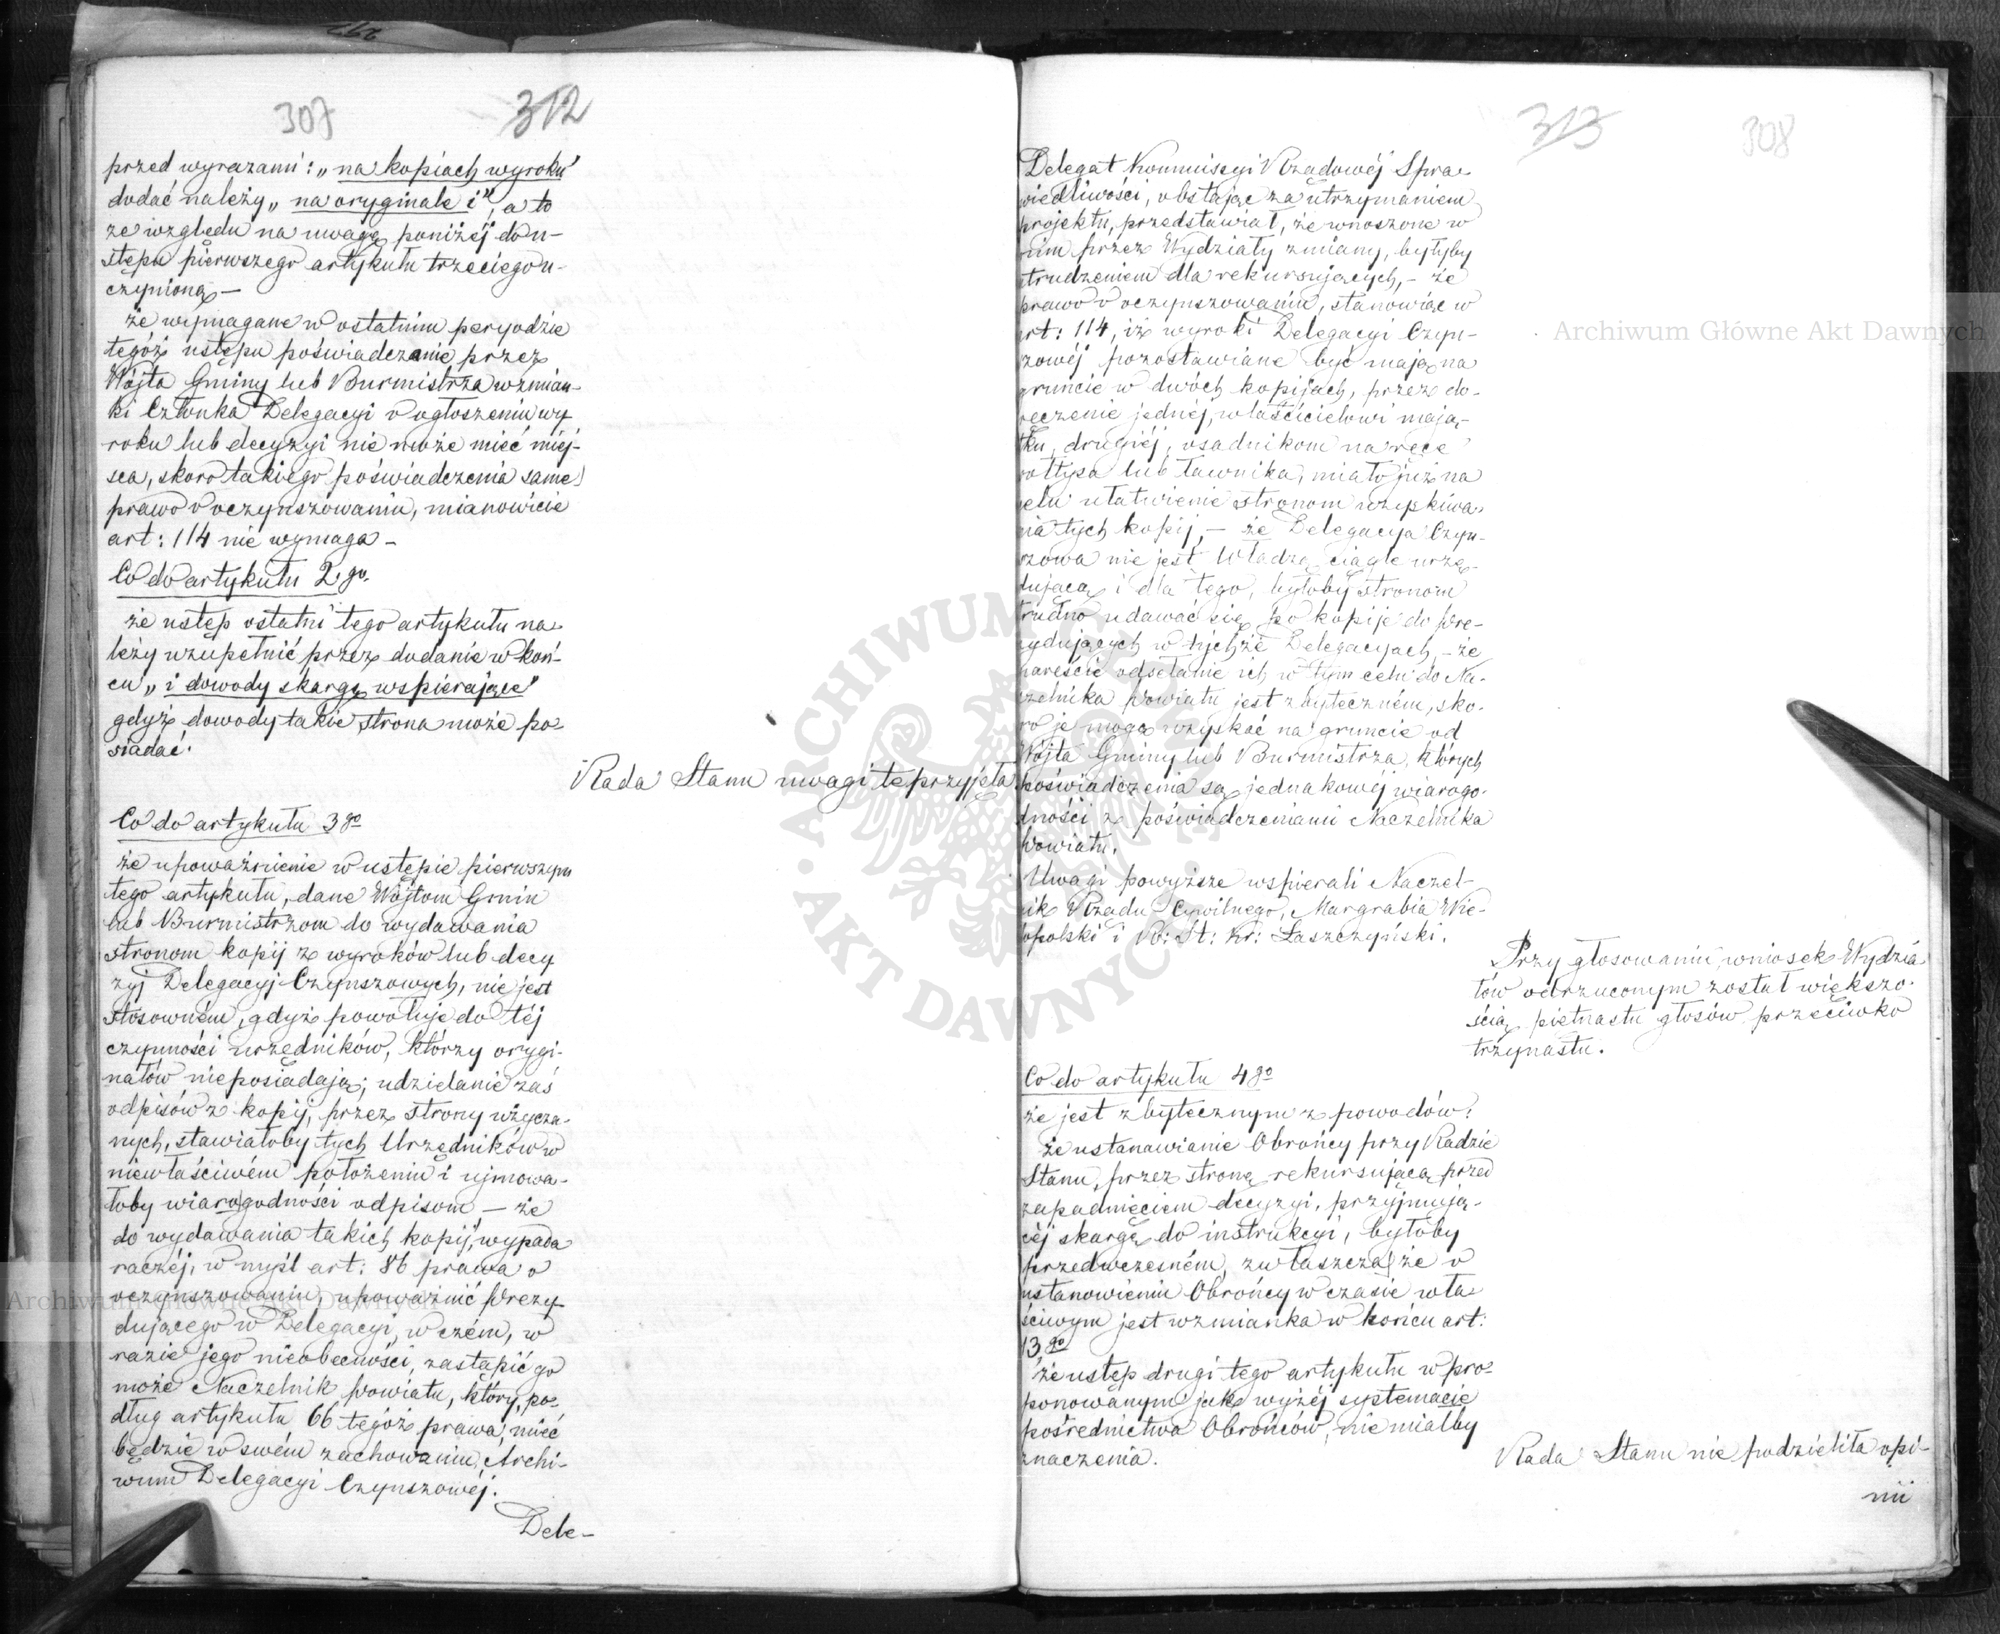 307
312
przed wyrazami: „na kopiach wyroku”
dodać należy „na oryginale i”, a to
ze względu na uwagę poniżéj do u-
stępu pierwszego artykułu trzeciego u-
czynioną —
że wymagane w ostatnim peryodzie
tegóż ustępu poświadczanie przez
Wójta Gminy lub Burmistrza wzmian-
ki Członka Delegacyi o ogłoszeniu wy
roku lub decyzyi nie może mieć miéj-
sca, skoro takiego poświadczenia same
prawo o oczynszowaniu, mianowicie
art: 114 nie wymaga —
Co do artykułu 2go.
że ustęp ostatni tego artykułu na
leży uzupełnić przez dodanie w koń-
cu „i dowody skargę wspierające”
gdyż dowody takie strona może po-
siadać.
Rada Stanu uwagi te przyjęła
Co do artykułu 3go
że upoważnienie w ustępie pierwszym
tego artykułu, dane Wójtom Gmin
lub Burmistrzom do wydawania
stronom kopij z wyroków lub decy
zyj Delegacyj Czynszowych, nie jest
stosowném, gdyż powołuje do téj
czynności urzędników, którzy orygi-
nałów nieposiadają; udzielanie zaś
odpisów z kopij, przez strony użycza-
nych, stawiałoby tych Urzędników w
niewłaściwém położeniu i ujmowa-
łoby wiarogodności odpisom — że
do wydawania takich kopij, wypada
raczéj, w myśl art: 86 prawa o
oczynszowaniu, upoważnić Prezy-
dującego w Delegacyi, w czém, w
razie jego nieobecności, zastąpić go
może Naczelnik Powiatu, który, po-
dług artykułu 66 tegóż prawa, mieć
będzie w swém zachowaniu, Archi-
wum Delegacyi Czynszowéj.
Dele-
313
308
Delegat Kommissyi Rządowéj Spra-
wiedliwości, obstając za utrzymaniem
projektu, przedstawiał, że wnoszone w
nim przez Wydziały zmiany, byłyby
utrudzeniem dla rekursujących, — że
prawo o oczynszowaniu, stanowiąc w
art: 114, iż wyroki Delegacyi Czyn-
szowéj pozostawiane być mają na
gruncie w dwóch kopijach, przez do-
ręczenie jednéj, właścicielowi mają-
tku, drugiéj, osadnikom na ręce
sołtysa lub ławnika, miało już na
celu ułatwienie stronom uzyskiwa-
nia tych kopij, — że Delegacya Czyn-
szowa nie jest Władzą ciągle urzę-
dującą i dla tego, byłoby stronom
trudno udawać się po kopije do Pre-
zydujących w tychże Delegacyach, — że
nareście odsełanie ich w tym celu do Na-
czelnika Powiatu jest zbyteczném, sko-
ro je mogą uzyskać na gruncie od
Wójta Gminy lub Burmistrza, których
poświadczenia są jednakowéj wiarogo-
dności z poświadczeniami Naczelnika
Powiatu.
Uwagi powyższe wspierali Naczel-
nik Rządu Cywilnego, Margrabia Wie-
lopolski i R: St: Kr: Łaszczyński.
Przy głosowaniu, wniosek Wydzia-
łów odrzuconym został większo-
ścią piętnastu głosów przeciwko
trzynastu.
Co do artykułu 4go
że jest zbytecznym z powodów:
że ustanawianie Obrońcy przy Radzie
Stanu, przez stronę rekursującą przed
zapadnięciem decyzyi, przyjmują-
céj skargę do instrukcyi, byłoby
przedwczesném, zwłaszcza, że o
ustanowieniu Obrońcy w czasie wła-
ściwym jest wzmianka w końcu art:
13go
że ustęp drugi tego artykułu w pro-
ponowanym jak wyżéj systemacie
pośrednictwa Obrońców, nie miałby
znaczenia.
Rada Stanu nie podzieliła opi-
nii
Archiwum Główne Akt Dawnych
Archiwum Główne Akt Dawnych
ARCHIWUM GŁÓWNE AKT DAWNYCH